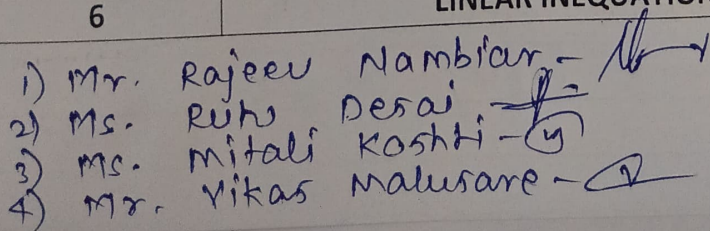 6 LINEAR INEQUATION
1) Mr. Rajeev Nambiar -
2) Ms. Desai -
3) Ms. Mitali Koshti -
4) Mr. Vikas Malusare -